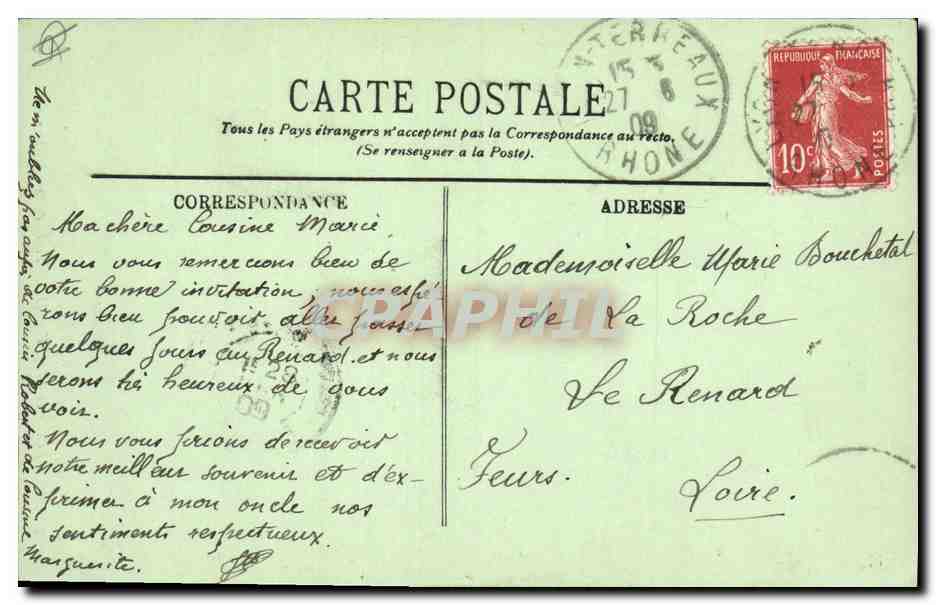 CARTE POSTALE
Tous les Pays étrangers n'acceptent pas la Correspondance au recto.
(Se renseigner a la Poste).
N-TERREAUX
15
27 6
09
RHONE
REPUBLIQUE FRANÇAISE
10c
POSTES
CORRESPONDANCE
Ma chère Cousine Marie,
Nous vous remercions bien de
votre bonne invitation, nous espé-
rons bien pouvoir aller passer
quelques jours au Renard. et nous
serons très heureux de vous
voir.
Nous vous prions de recevoir
notre meilleur souvenir et d'ex-
primer à mon oncle nos
sentiments respectueux.
Ne m'oubliez pas auprès de Cousin Robert et de Cousine
Marguerite.
ADRESSE
Mademoiselle Marie Bouchetal
de La Roche
Le Renard
Feurs.
Loire.
CPAPHIL